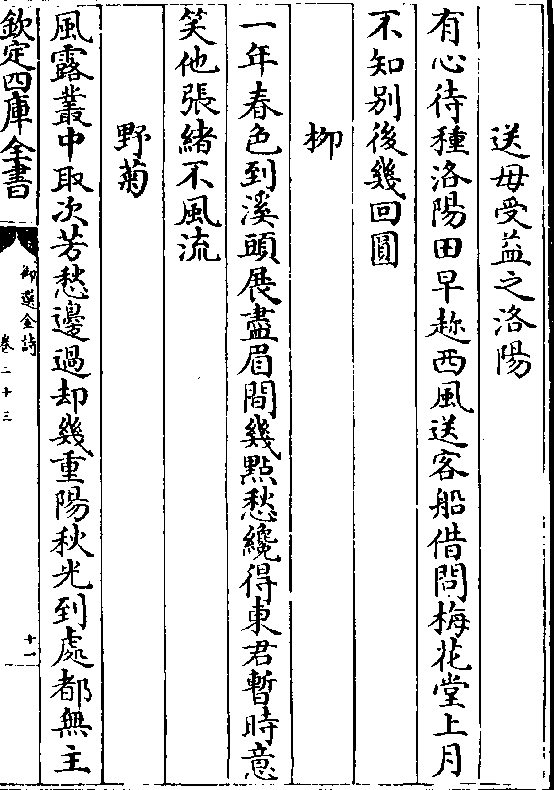 送毋受益之洛陽
有心待種洛陽田早趂西風送客船借問梅花堂上月
不知别後幾回圓
柳
一年春色到溪頭展盡眉間幾點愁纔得東君暫時意
笑他張緒不風流
野菊
風露叢中取次芳愁邊過却幾重陽秋光到處都無主
欽定四庫全書
御選金詩
卷二十三
十一